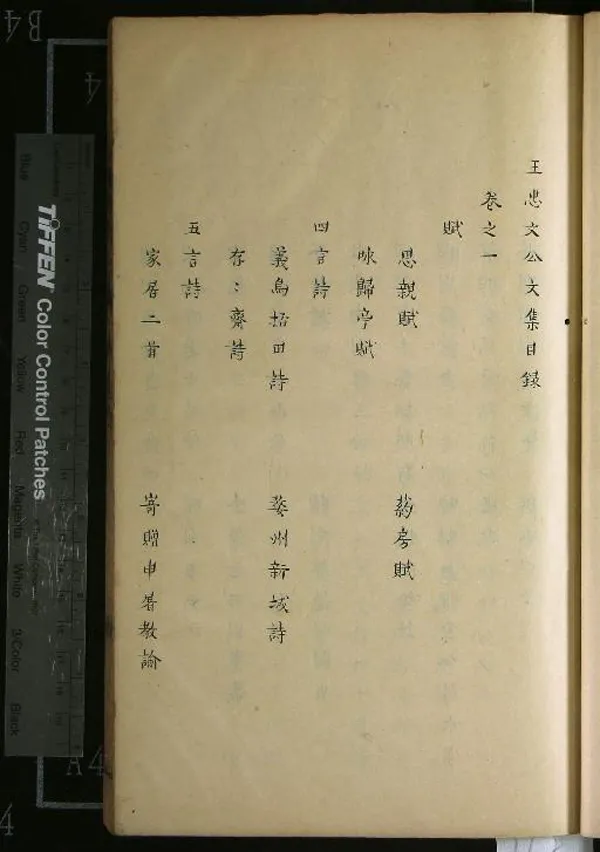 王忠文公文集目錄
卷之一
賦
思親賦 葯房賦
咏歸亭賦
四言詩
義烏招田詩 婺州新城詩
存〻齋詩
五言詩
家居二首 寄贈申屠教諭
TIFFEN Color Control Patches
Blue Cyan Green Yellow Red Magenta White 3/Color Black
B4
4
A4
4